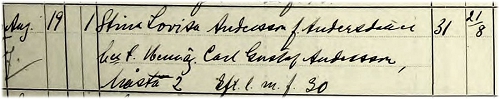 Aug. 19 1 Stina Lovisa Andersson f. Andersdotter 31 21/8
Carl Gustaf Andersson,
2 Eft. l. m. f. 30